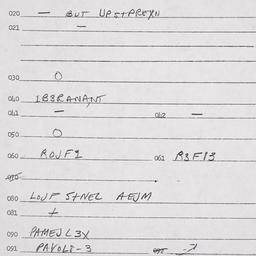 020 — BUT UPSTPREYN
021 —
030 O
040 IB3RANANT
041 — 042 —
050 O
060 ROUF1 061 R3F13
080 LOUP STNEL AEJM
081 +
090 PAMEJL3X
091 PAVOLI-3